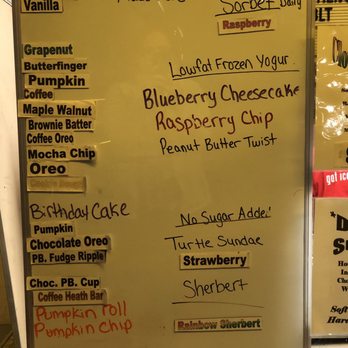 Vanilla
Grapenut
Butterfinger
Pumpkin
Coffee
Maple Walnut
Brownie Batter
Coffee Oreo
Mocha Chip
Oreo
Birthday Cake
Pumpkin
Chocolate Oreo
PB. Fudge Ripple
Choc. PB. Cup
Coffee Heath Bar
Pumpkin roll
Pumpkin chip
Sorbet Daily
Raspberry
Lowfat Frozen Yogur
Blueberry Cheesecake
Raspberry Chip
Peanut Butter Twist
No Sugar Added
Turtle Sundae
Strawberry
Sherbert
Rainbow Sherbert
BLT
got ice